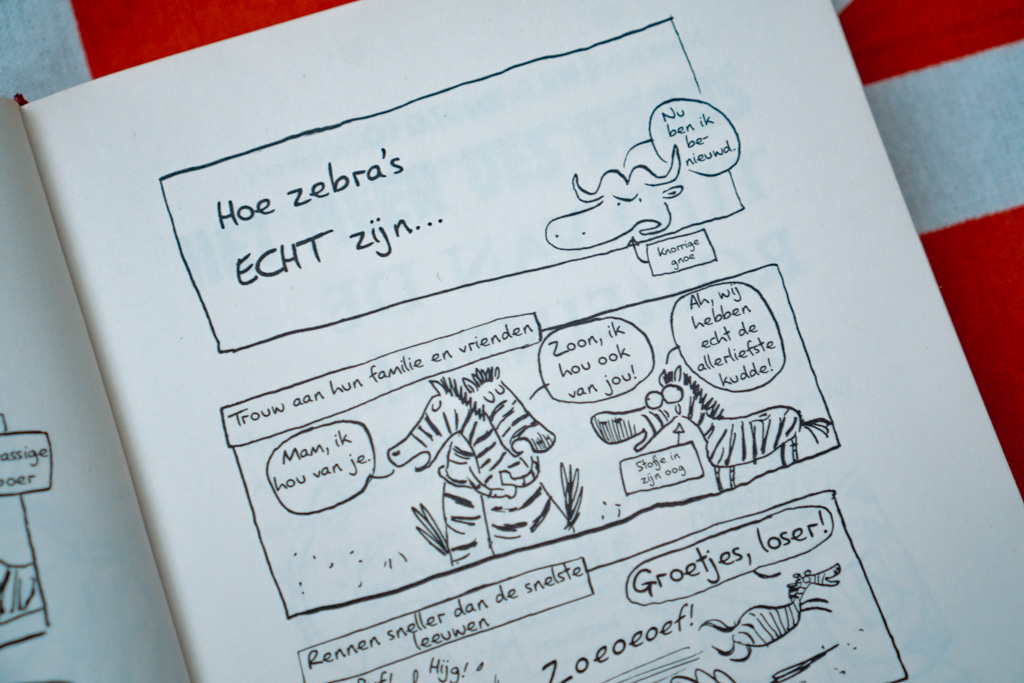 Hoe zebra's
ECHT zijn...
Nu
ben ik
be-
nieuwd.
Knorrige
gnoe
Trouw aan hun familie en vrienden
Mam, ik
hou van je.
Zoon, ik
hou ook
van jou!
Ah, wij
hebben
echt de
allerliefste
kudde!
Stofje in
zijn oog
Rennen sneller dan de snelste
leeuwen
Groetjes, loser!
Zoeoeoef!
Hijg!